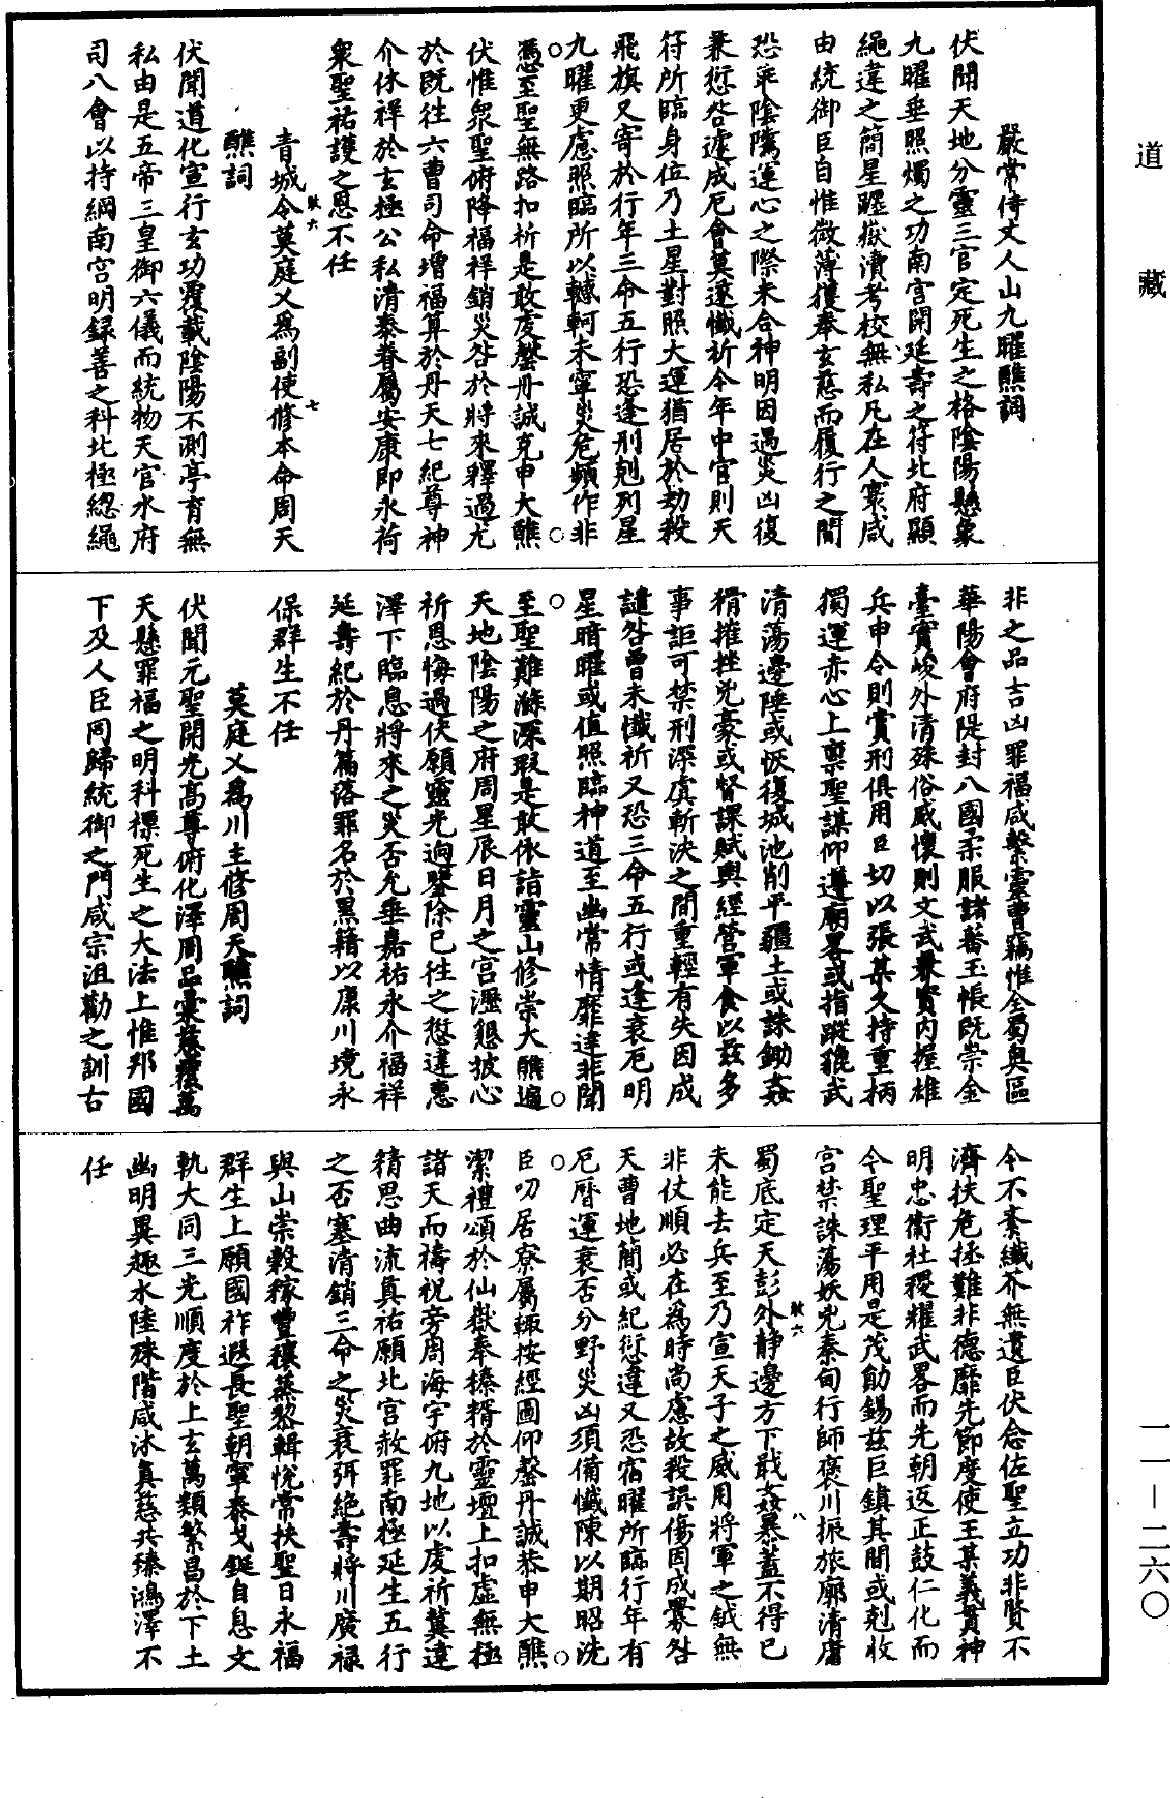 道藏
嚴常侍丈人山九曜醮詞
伏聞天地分靈三官定死生之格陰陽懸象
九曜垂照燭之功南宮開延壽之符北府顯
繩違之簡星躔嶽瀆考校無私凡在人寰咸
由統御臣自惟微薄獲奉玄慈而履行之間
恐乖陰騭運心之際未合神明因過災凶復
兼愆咎遽成厄會莫遂懺祈今年中宮則天
符所臨身位乃土星對照大運猶居於劫殺
飛旗又寄於行年三命五行恐逢刑剋列星
九曜更慮照臨所以轗軻未寧災危頻作非
憑至聖無路扣祈是敢虔罄丹誠克申大醮
伏惟衆聖俯降福祥銷災咎於將來釋過尤
於既往六曹司命增福算於丹天七紀尊神
介休祥於玄極公私清泰眷屬安康即永荷
衆聖祐護之恩不任
青城令莫庭乂爲副使修本命周天
醮詞
伏聞道化宣行玄功覆載陰陽不測亭育無
私由是五帝三皇御六儀而統物天官水府
司八會以持綱南宮明録善之科北極總繩
非之品吉凶罪福咸繫靈曹竊惟全蜀奧區
華陽會府隄封八國柔服諸蕃玉帳既崇金
臺實峻外清殊俗威懷則文武兼資内握雄
兵申令則賞刑俱用臣切以張某久持重柄
獨運赤心上禀聖謀仰遵廟畧或指蹤貔武
清蕩邊陲或恢復城池削平疆土或誅鋤姦
猾摧挫兇豪或督課賦輿經營軍食以兹多
事詎可禁刑深虞斬決之間重輕有失因成
譴咎曾未懺祈又恐三命五行或逢衰厄明
星暗曜或值照臨神道至幽常情靡達非聞
至聖難滌深瑕是敢依詣靈山修崇大醮遍
天地陰陽之府周星辰日月之宮瀝懇披心
祈恩悔過伏願靈光迴鑒除已往之愆違惠
澤下臨息將來之災否允垂嘉祐永介福祥
延壽紀於丹篇落罪名於黑籍以康川境永
保群生不任
莫庭乂爲川主修周天醮詞
伏聞元聖開光高尊俯化澤周品彙慈覆萬
天懸罪福之明科標死生之大法上惟邦國
下及人臣同歸統御之門咸宗沮勸之訓古
今不紊纖芥無遺臣伏念佐聖立功非賢不
濟扶危拯難非德靡先節度使王某義貫神
明忠衛社稷耀武畧而先朝返正鼓仁化而
今聖理平用是茂勛錫兹巨鎮其間或剋收
宮禁誅蕩妖兇秦甸行師褒川振旅廓清庸
蜀底定天彭外静邊方下戢姦暴蓋不得已
未能去兵至乃宣天子之威用將軍之鉞無
非仗順必在爲時尚慮故殺誤傷因成釁咎
天曹地簡或紀愆違又恐宿曜所臨行年有
厄曆運衰否分野災凶須備懺陳以期昭洗
臣叨居寮屬輒按經圖仰罄丹誠恭申大醮
潔禮頌於仙嶽奉榛糈於靈壇上扣虛無極
諸天而禱祝旁周海宇俯九地以虔祈冀達
精思曲流真祐願北宮赦罪南極延生五行
之否塞清銷三命之災衰弭絶壽將川廣禄
與山崇穀稼豐穰蒸黎輯悅常扶聖日永福
群生上願國祚遐長聖朝寧泰戈鋋自息文
軌大同三光順度於上玄萬類繁昌於下土
幽明異趣水陸殊階咸沐真慈共臻鴻澤不
任
一一—二六〇